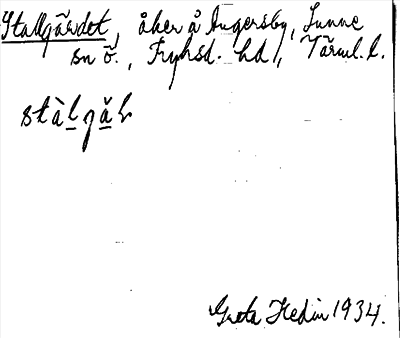 Stallgärdet, åker å Ingersby, Sunne
sn ö., Fryksd. hd, Värml. l.
stàlgǎl
Greta Hedin 1934.